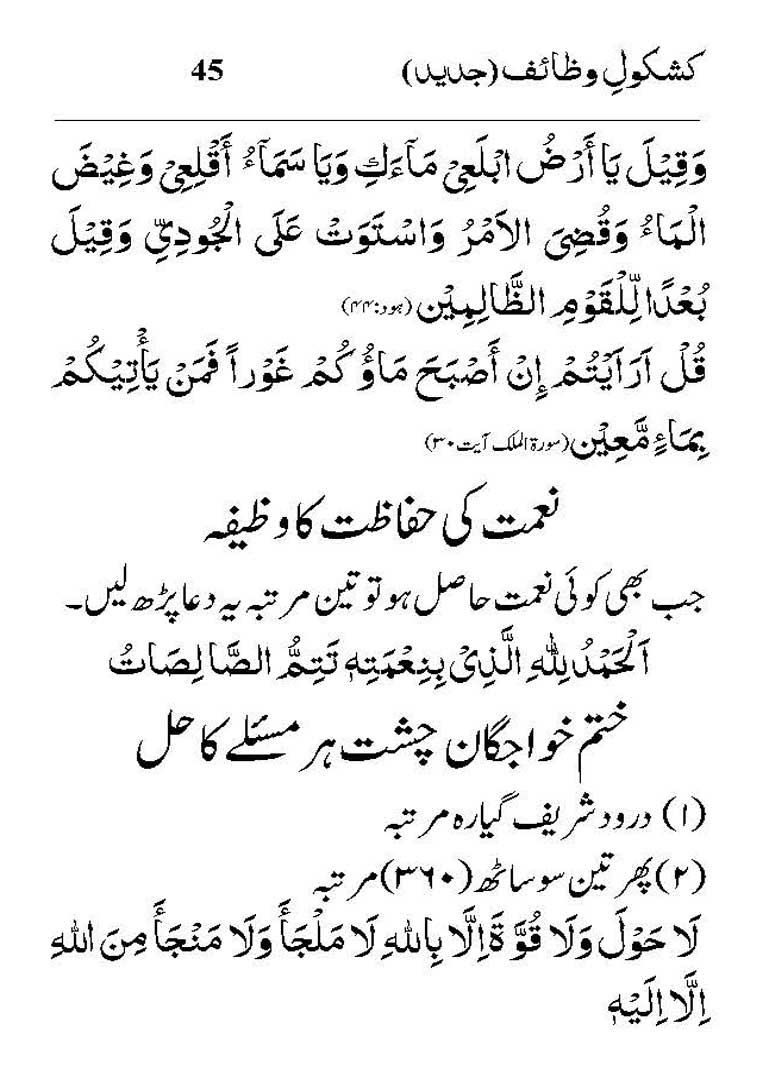 کشکولِ وظائف (جدید) 45
وَقِيْلَ يَا أَرْضُ ابْلَعِيْ مَآءَكِ وَيَا سَمَآءُ أَقْلِعِيْ وَغِيْضَ
الْمَاءُ وَقُضِيَ الاَمْرُ وَاسْتَوَتْ عَلَى الْجُودِيِّ وَقِيْلَ
بُعْدًا لِّلْقَوْمِ الظَّالِمِيْن (ہود:۴۴)
قُلْ اَرَاَيْتُمْ إِنْ أَصْبَحَ مَاؤُكُمْ غَوْراً فَمَنْ يَأْتِيْكُمْ
بِمَاءٍ مَّعِيْن (سورۃ الملک آیت ۳۰)
نعمت کی حفاظت کا وظیفہ
جب بھی کوئی نعمت حاصل ہو تو تین مرتبہ یہ دعا پڑھ لیں۔
اَلْحَمْدُ لِلّٰهِ الَّذِيْ بِنِعْمَتِهٖ تَتِمُّ الصَّالِصَاتُ
ختم خواجگان چشت ہر مسئلے کا حل
(۱) درود شریف گیارہ مرتبہ
(۲) پھر تین سو ساٹھ (۳۶۰) مرتبہ
لَا حَوْلَ وَلَا قُوَّةَ اِلَّا بِاللّٰهِ لَا مَلْجَأَ وَلَا مَنْجَأَ مِنَ اللّٰهِ
اِلَّا اِلَيْهِ